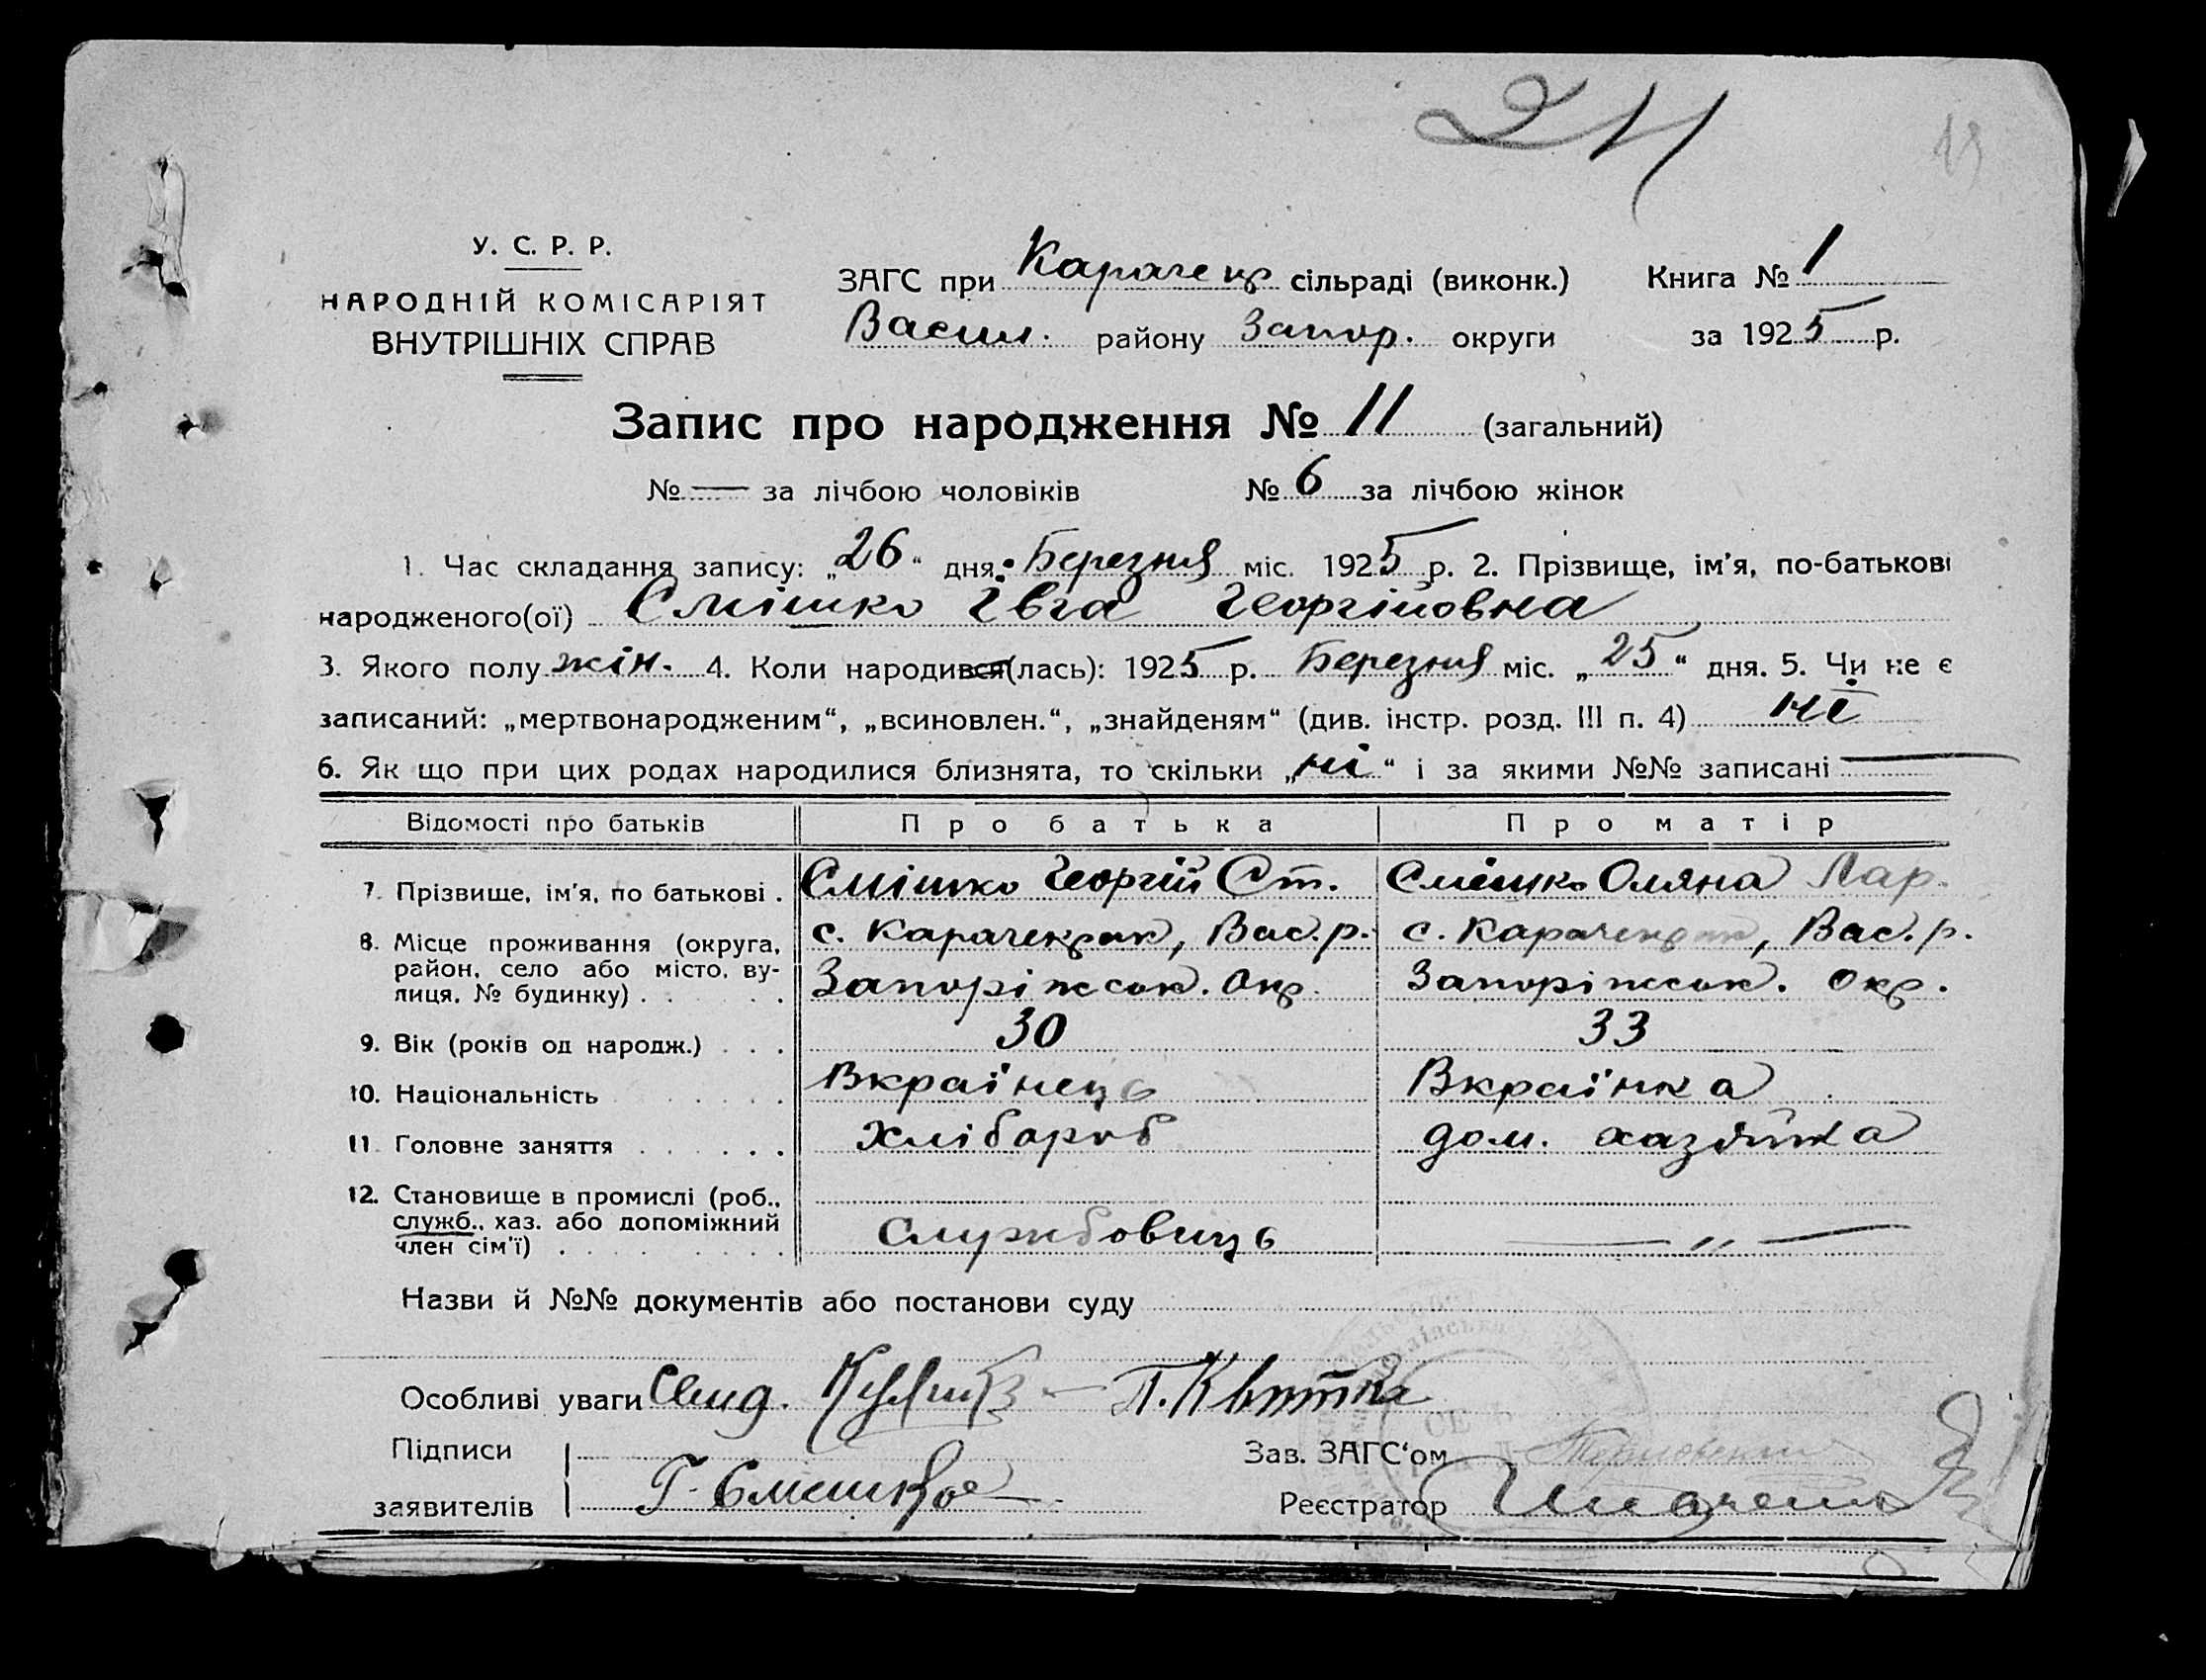 24
У. С. Р. Р.
НАРОДНІЙ КОМІСАРІЯТ
ВНУТРІШНІХ СПРАВ
ЗАГС при Карачекр сільраді (виконк.) Книга № 1
Васил. району Запор. округи за 1925 р.
Запис про народження № 11 (загальний)
№ — за лічбою чоловіків № 6 за лічбою жінок
1. Час складання запису: „26“ дня Березня міс. 1925 р. 2. Прізвище, ім'я, по-батькові
народженого(ої) Смішко Івга Георгійовна
3. Якого полу жін. 4. Коли народився(лась): 1925 р. Березня міс. „25“ дня. 5. Чи не є
записаний: „мертвонародженим“, „всиновлен.“, „знайденям“ (див. інстр. розд. III п. 4) ні
6. Як що при цих родах народилися близнята, то скільки „ні“ і за якими №№ записані —
Відомості про батьків Про батька Про матір
7. Прізвище, ім'я, по батькові . Смішко Георгій Ст. Смішко Оляна Лар.
8. Місце проживання (округа, с. Карачекрак, Вас. р. с. Карачекрак, Вас. р.
район, село або місто, ву-
лиця, № будинку) . . . Запоріжськ. Окр. Запоріжськ. Окр.
9. Вік (років од народж.) . . . 30 33
10. Національність . . . . Вкраїнець Вкраїнка
11. Головне заняття . . . . . . Хлібороб дом. хазяйка
12. Становище в промислі (роб.,
служб., хаз. або допоміжний
член сім'ї) . . . . . . Службовиць — „ —
Назви й №№ документів або постанови суду
Особливі уваги Свид. П. Квитка
Підписи Зав. ЗАГС'ом
заявителів Г. Смешко Реєстратор